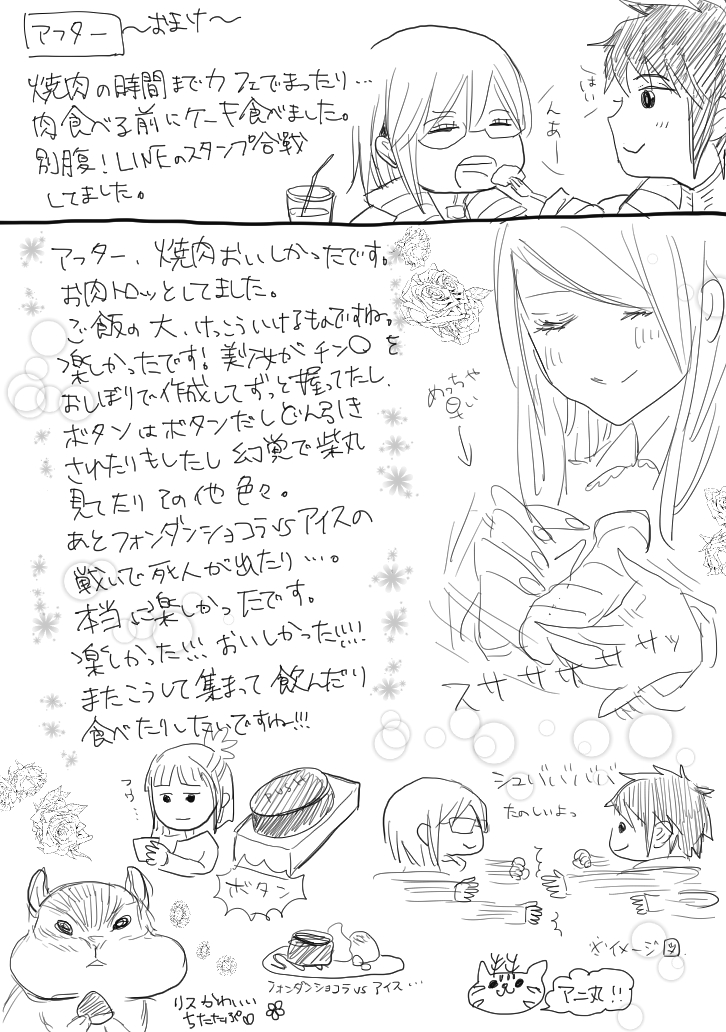 アフター ～おまけ～
焼肉の時間までカフェでまったり…
肉食べる前にケーキ食べました。
別腹！LINEのスタンプ合戦
してました。
んあー
はい
アフター、焼肉おいしかったです。
お肉トロッとしてました。
ご飯の大、けっこういけるものですね。
楽しかったです！美少女がチン〇を
おしぼりで作成してずっと握ってたし、
ボタンはボタンだしどん引き
されたりもしたし幻覚で柴丸
見てたりその他色々。
あとフォンダンショコラvsアイスの
戦いで死人が出たり…。
本当に楽しかったです。
楽しかった!!! おいしかった!!!!
またこうして集まって飲んだり
食べたりしたいですね!!!
めっちゃ
↓
スササササササッ
ボタン
シュババババ
たのしいよっ
※イメージ
リスかわいい
フォンダンショコラvsアイス…
アニ丸!!